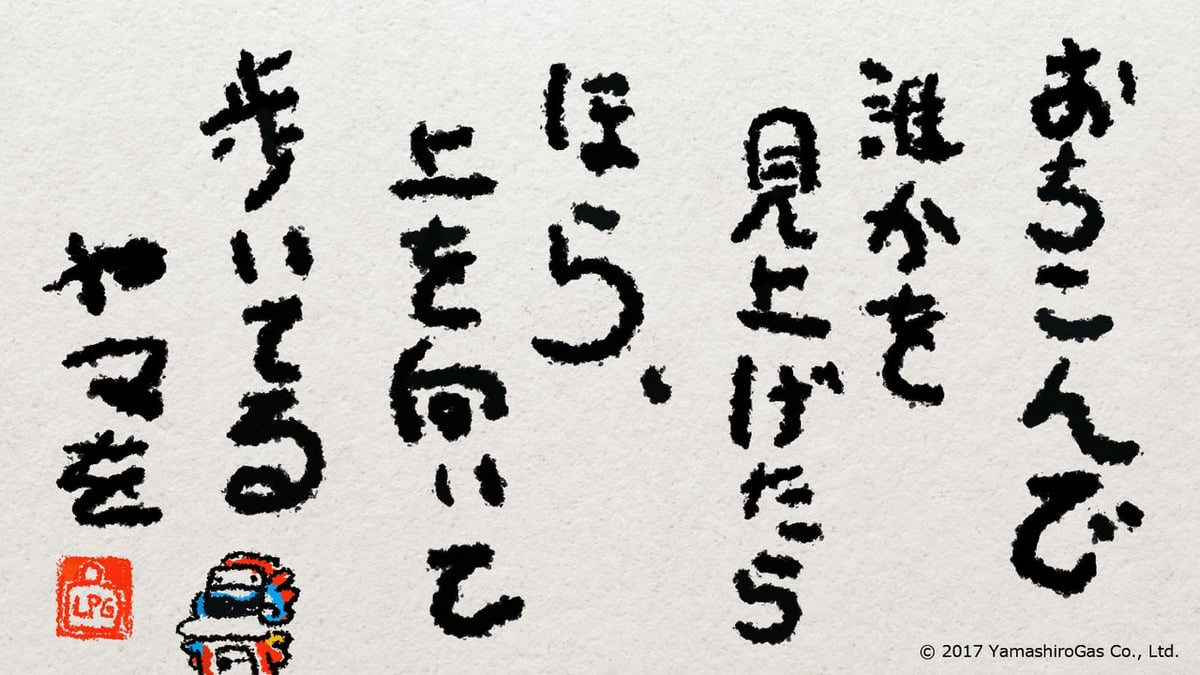 おちこんで
誰かを
見上げたら
ほら、
上を向いて
歩いてる
やマを
LPG
© 2017 YamashiroGas Co., Ltd.